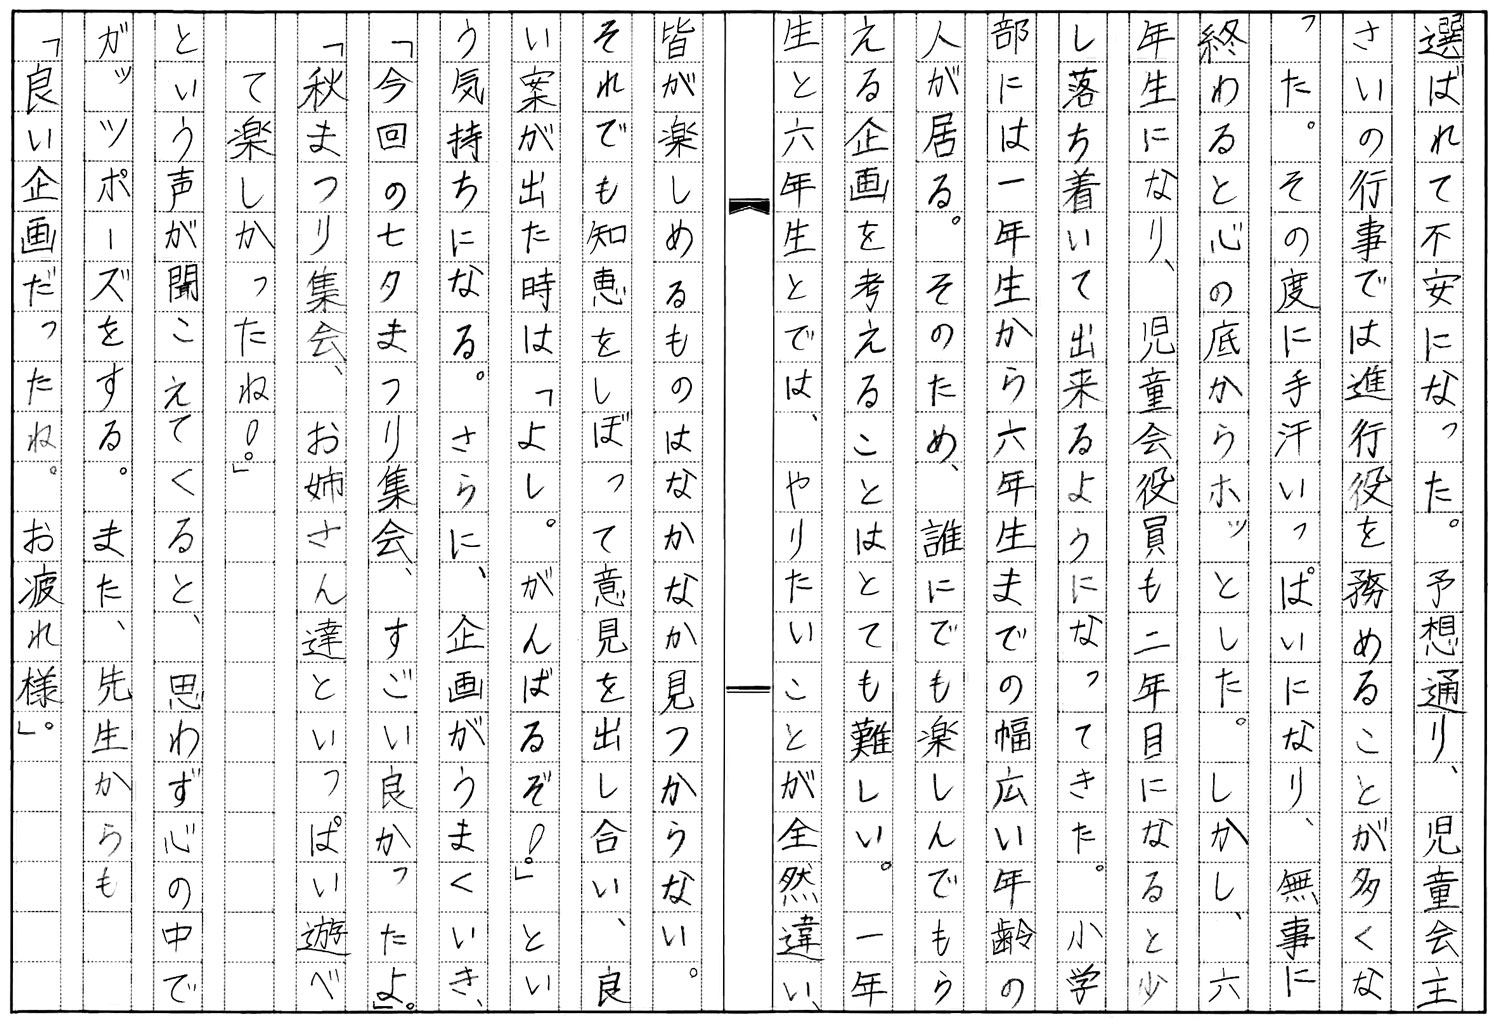 選ばれて不安になった。予想通り、児童会主
さいの行事では進行役を務めることが多くな
った。その度に手汗いっぱいになり、無事に
終わると心の底からホッとした。しかし、六
年生になり、児童会役員も二年目になると少
し落ち着いて出来るようになってきた。小学
部には一年生から六年生までの幅広い年齢の
人が居る。そのため、誰にでも楽しんでもら
える企画を考えることはとても難しい。一年
生と六年生とでは、やりたいことが全然違い、
皆が楽しめるものはなかなか見つからない。
それでも知恵をしぼって意見を出し合い、良
い案が出た時は「よし。がんばるぞ!」とい
う気持ちになる。さらに、企画がうまくいき、
「今回の七夕まつり集会、すごい良かったよ。」
「秋まつり集会、お姉さん達といっぱい遊べ
て楽しかったね!」
という声が聞こえてくると、思わず心の中で
ガッツポーズをする。また、先生からも
「良い企画だったね。お疲れ様」。